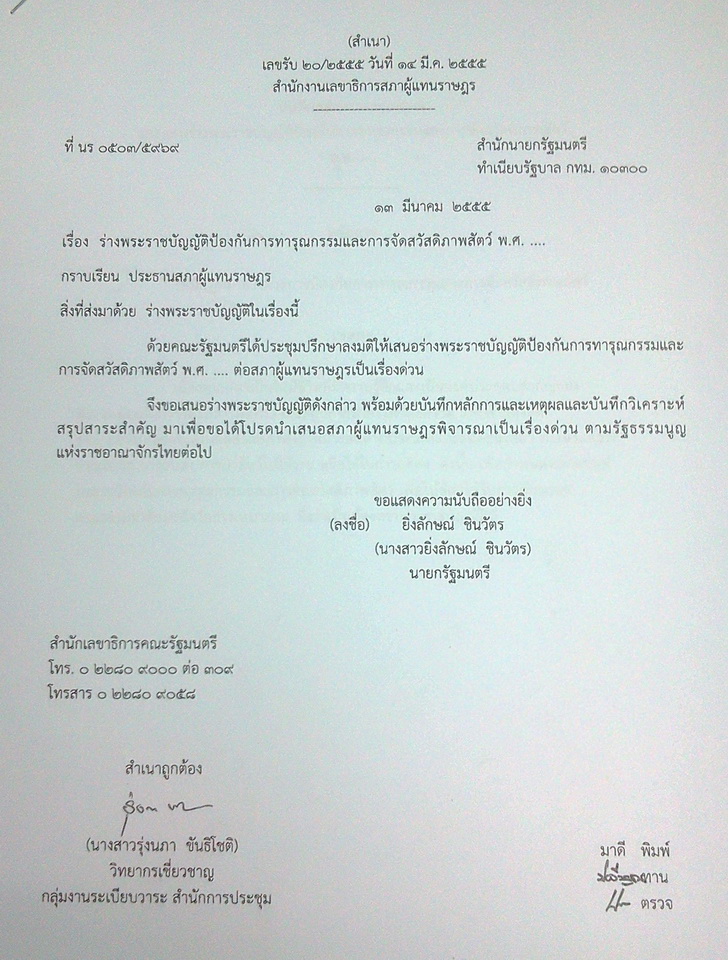 (สำเนา)
เลขรับ ๒๐/๒๕๕๕ วันที่ ๑๔ มี.ค. ๒๕๕๕
สำนักงานเลขาธิการสภาผู้แทนราษฎร
ที่ นร ๐๕๐๓/๕๙๖๙
สำนักนายกรัฐมนตรี
ทำเนียบรัฐบาล กทม. ๑๐๓๐๐
๑๓ มีนาคม ๒๕๕๕
เรื่อง ร่างพระราชบัญญัติป้องกันการทารุณกรรมและการจัดสวัสดิภาพสัตว์ พ.ศ. ....
กราบเรียน ประธานสภาผู้แทนราษฎร
สิ่งที่ส่งมาด้วย ร่างพระราชบัญญัติในเรื่องนี้
ด้วยคณะรัฐมนตรีได้ประชุมปรึกษาลงมติให้เสนอร่างพระราชบัญญัติป้องกันการทารุณกรรมและ
การจัดสวัสดิภาพสัตว์ พ.ศ. .... ต่อสภาผู้แทนราษฎรเป็นเรื่องด่วน
จึงขอเสนอร่างพระราชบัญญัติดังกล่าว พร้อมด้วยบันทึกหลักการและเหตุผลและบันทึกวิเคราะห์
สรุปสาระสำคัญ มาเพื่อขอได้โปรดนำเสนอสภาผู้แทนราษฎรพิจารณาเป็นเรื่องด่วน ตามรัฐธรรมนูญ
แห่งราชอาณาจักรไทยต่อไป
ขอแสดงความนับถืออย่างยิ่ง
(ลงชื่อ) ยิ่งลักษณ์ ชินวัตร
(นางสาวยิ่งลักษณ์ ชินวัตร)
นายกรัฐมนตรี
สำนักเลขาธิการคณะรัฐมนตรี
โทร. ๐ ๒๒๘๐ ๙๐๐๐ ต่อ ๓๐๙
โทรสาร ๐ ๒๒๘๐ ๙๐๕๘
สำเนาถูกต้อง
(นางสาวรุ่งนภา ขันธิโชติ)
วิทยากรเชี่ยวชาญ
กลุ่มงานระเบียบวาระ สำนักการประชุม
มาดี พิมพ์
ทาน
ตรวจ